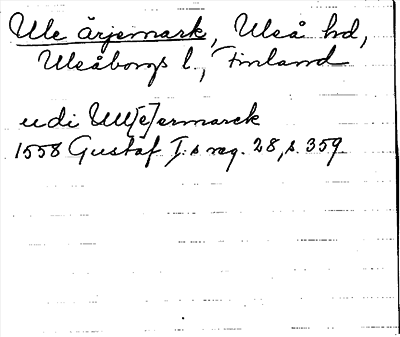 Ule ärjemark, Uleå hd,
Uleåborgs l., Finland
udi Ull[e]ermarck
1558 Gustaf I:s reg. 28, s. 359